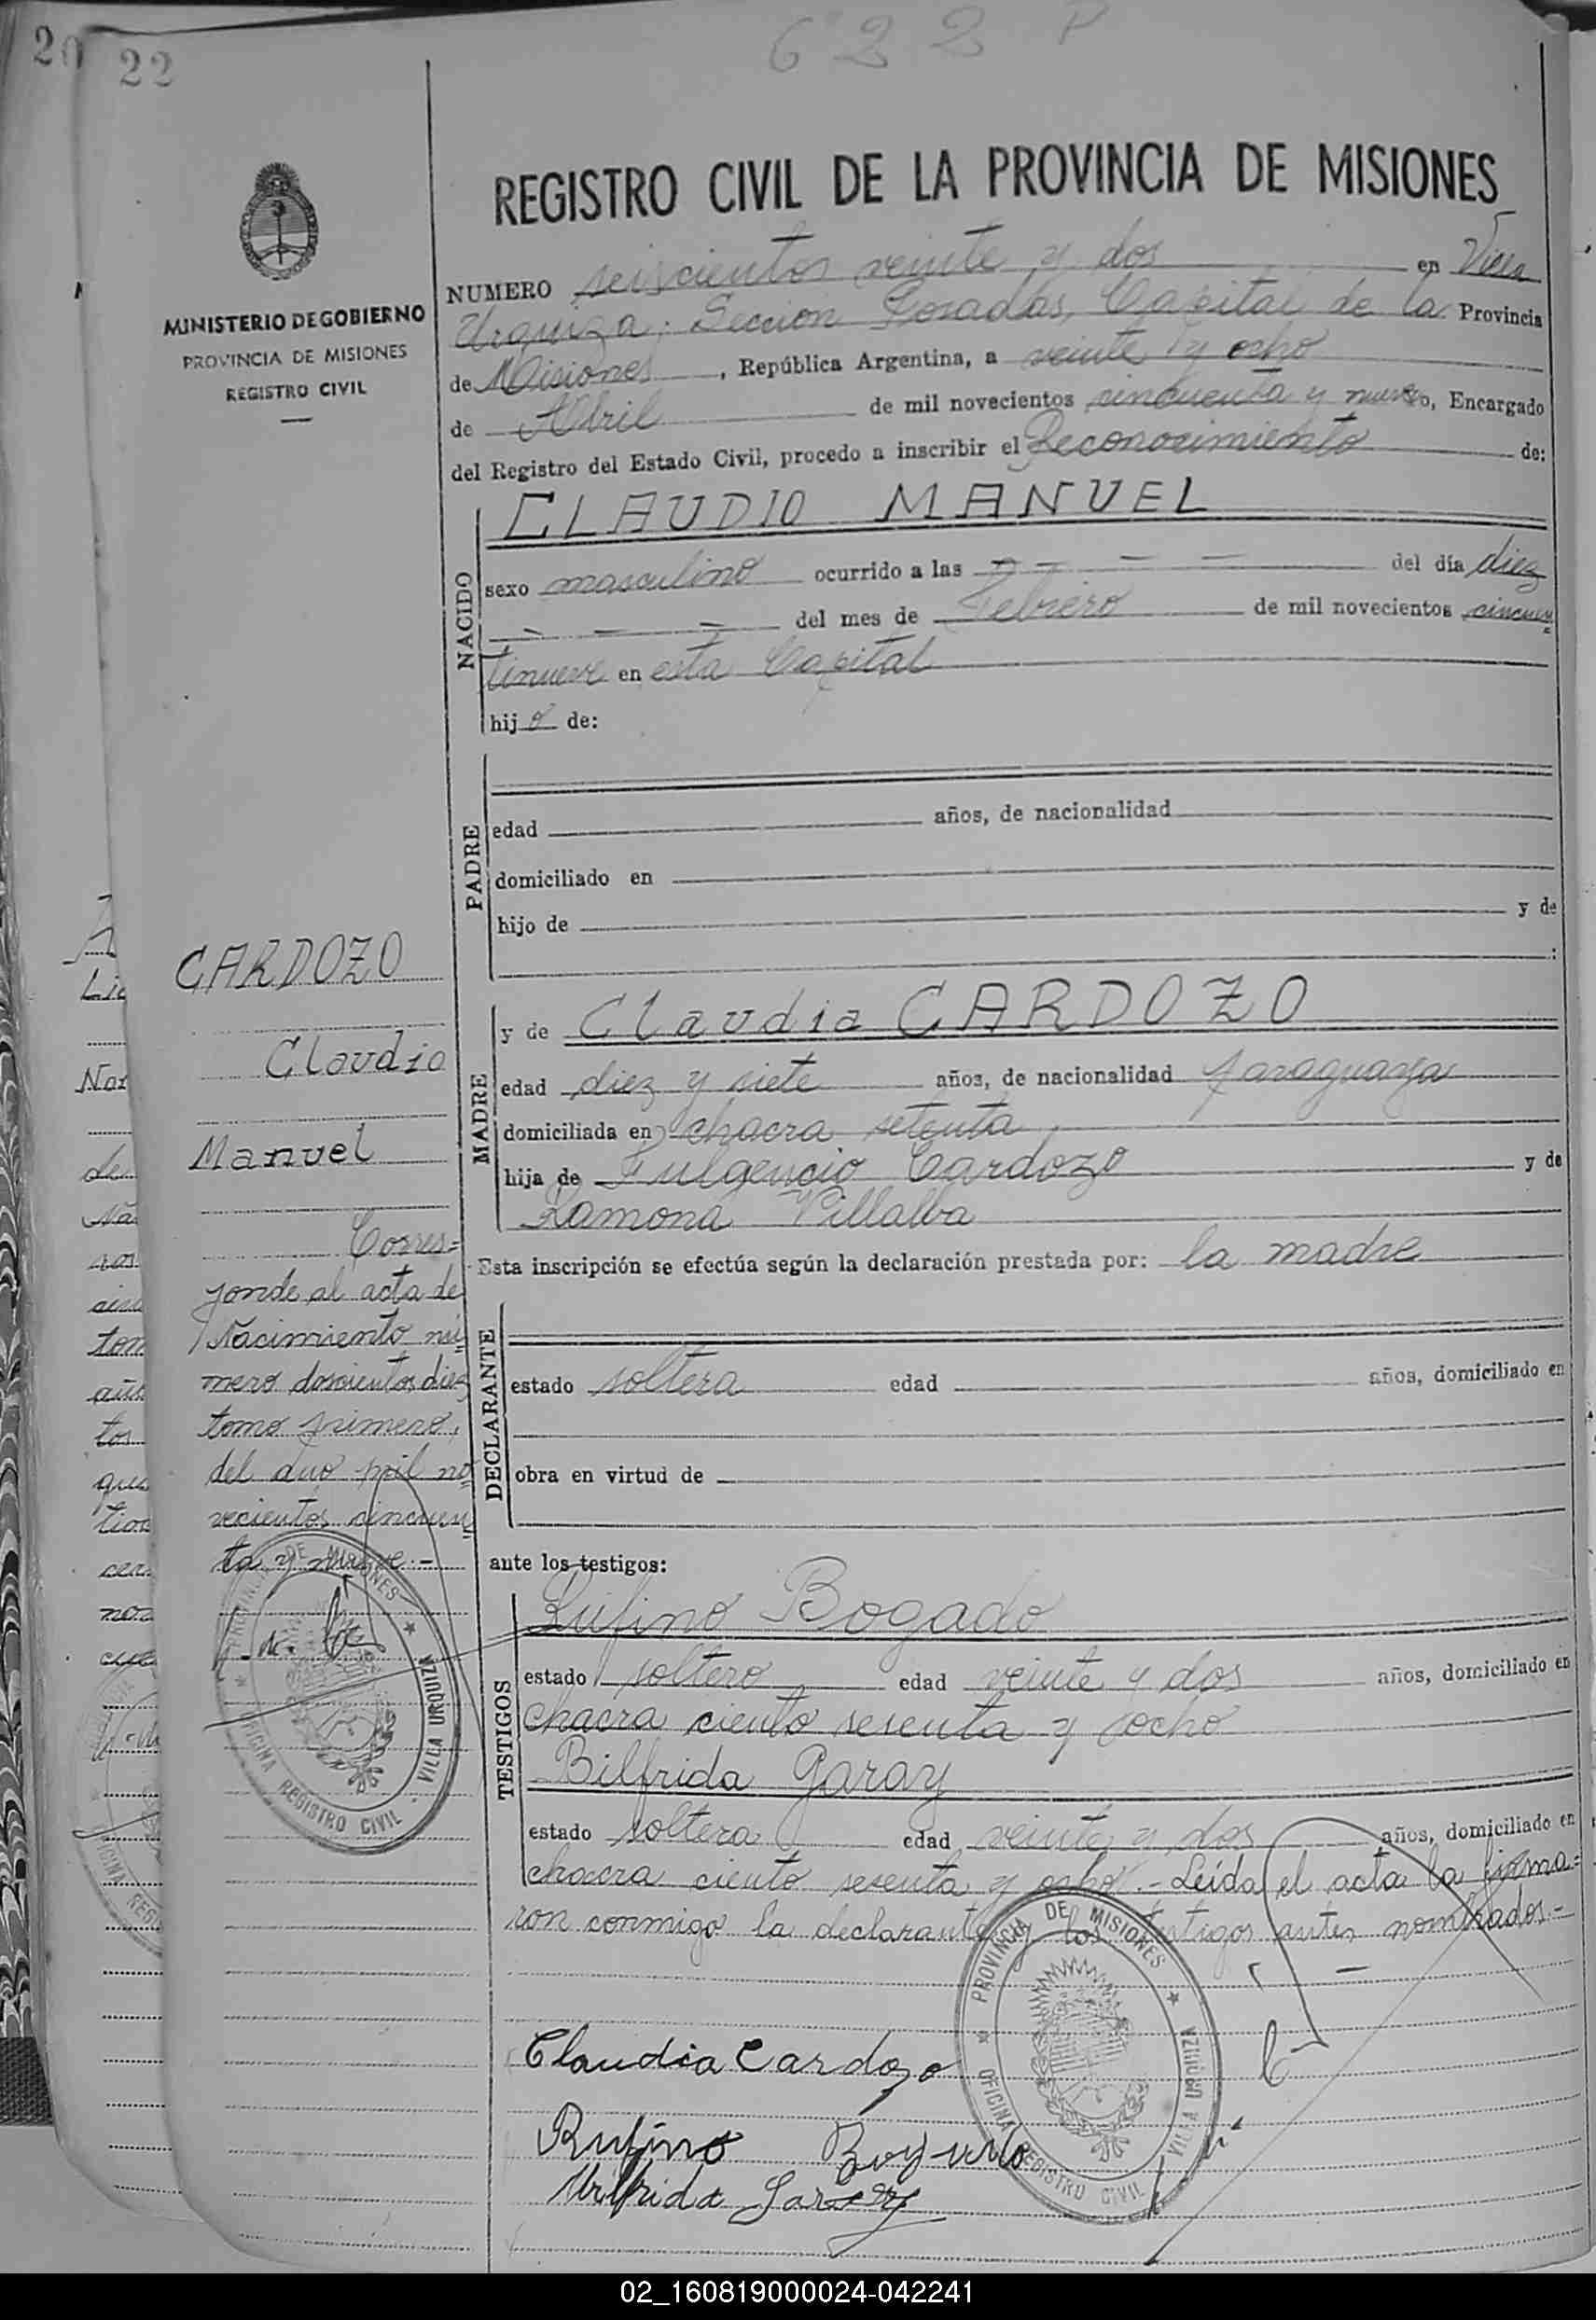 622 P
20
22
REGISTRO CIVIL DE LA PROVINCIA DE MISIONES
MINISTERIO DE GOBIERNO
PROVINCIA DE MISIONES
REGISTRO CIVIL
NUMERO seiscientos veinte y dos en Villa
Urquiza, Sección Posadas, Capital de la Provincia
de Misiones, República Argentina, a veinte y ocho
de Abril de mil novecientos cincuenta y nueve, Encargado
del Registro del Estado Civil, procedo a inscribir el Reconocimiento de:
NACIDO
CLAUDIO MANUEL
sexo masculino ocurrido a las - - - - del día diez
- - - del mes de Febrero de mil novecientos cincuen=
tinueve en esta Capital
hijo de:
PADRE
edad años, de nacionalidad
domiciliado en
hijo de y de
:
MADRE
y de Claudia CARDOZO
edad diez y siete años, de nacionalidad paraguaya
domiciliada en chacra setenta
hija de Fulgencio Cardozo y de
Ramona Villalba
Esta inscripción se efectúa según la declaración prestada por: la madre
DECLARANTE
estado soltera edad años, domiciliado en
obra en virtud de
ante los testigos:
TESTIGOS
Rufino Bogado
estado soltero edad veinte y dos años, domiciliado en
chacra ciento sesenta y ocho
Bilfrida Garay
estado soltera edad veinte y dos años, domiciliado en
chacra ciento sesenta y ocho.- Leída el acta la firma=
ron conmigo la declarante y los testigos antes nombrados.-
CARDOZO
Claudio
Manuel
Corres=
ponde al acta de
Nacimiento nú=
mero doscientos diez
tomo primero,
del año mil no=
vecientos cincuen=
ta y nueve.-
PROVINCIA DE MISIONES
OFICINA REGISTRO CIVIL
VILLA URQUIZA
Claudia Cardozo
Rufino Bogado
Wilfrida Garay
PROVINCIA DE MISIONES
OFICINA REGISTRO CIVIL
VILLA URQUIZA
02_160819000024-042241